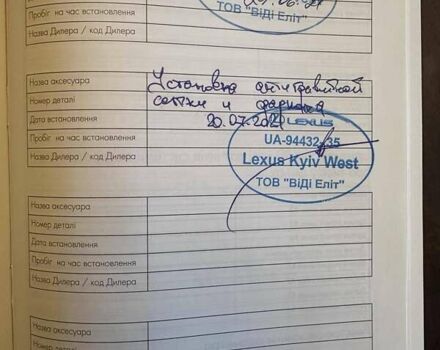 Пробіг на час встановлення
Назва Дилера / код Дилера
ТОВ "ВіДі Еліт"
Назва аксесуара
Установка
Номер деталі
сетки и фаркопа
Дата встановлення
20.07.2021
LEXUS
Пробіг на час встановлення
UA-94432-35
Назва Дилера / код Дилера
Lexus Kyiv West
ТОВ "ВіДі Еліт"
Назва аксесуара
Номер деталі
Дата встановлення
Пробіг на час встановлення
Назва Дилера / код Дилера
Назва аксесуара
Номер деталі